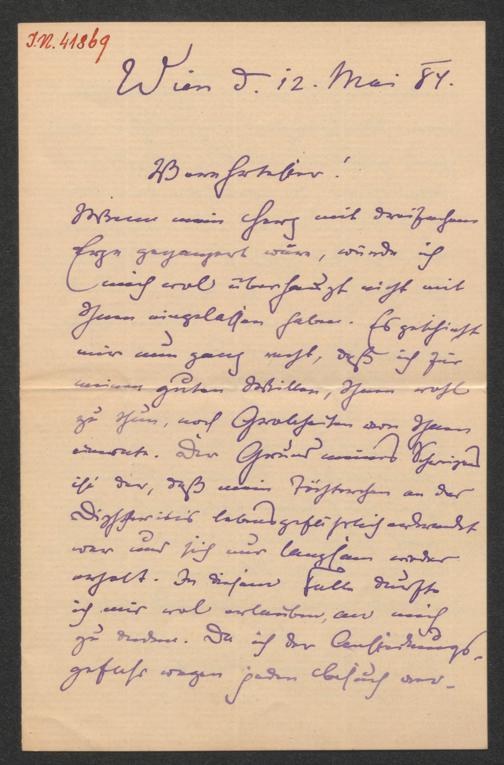 J.N. 41869
Wien d. 12. Mai 84.
Verehrtester!
Wenn mein Herz mit dreifachem
Erze gepanzert wäre, würde ich
mich wol überhaupt nicht mit
Ihnen eingelassen haben. Es geschieht
mir nun ganz recht, daß ich für
meinen guten Willen, Ihnen wohl
zu thun, noch Grobheiten von Ihnen
einernte. Der Grund meines Schweigens
ist der, daß mein Töchterchen an der
Diphteritis lebensgefährlich erkrankt
war und sich nur langsam wieder
erholt. In diesem Falle durfte
ich mir wol erlauben, an mich
zu denken. Da ich der Ansteckungs-
gefahr wegen jeden Besuch ver-